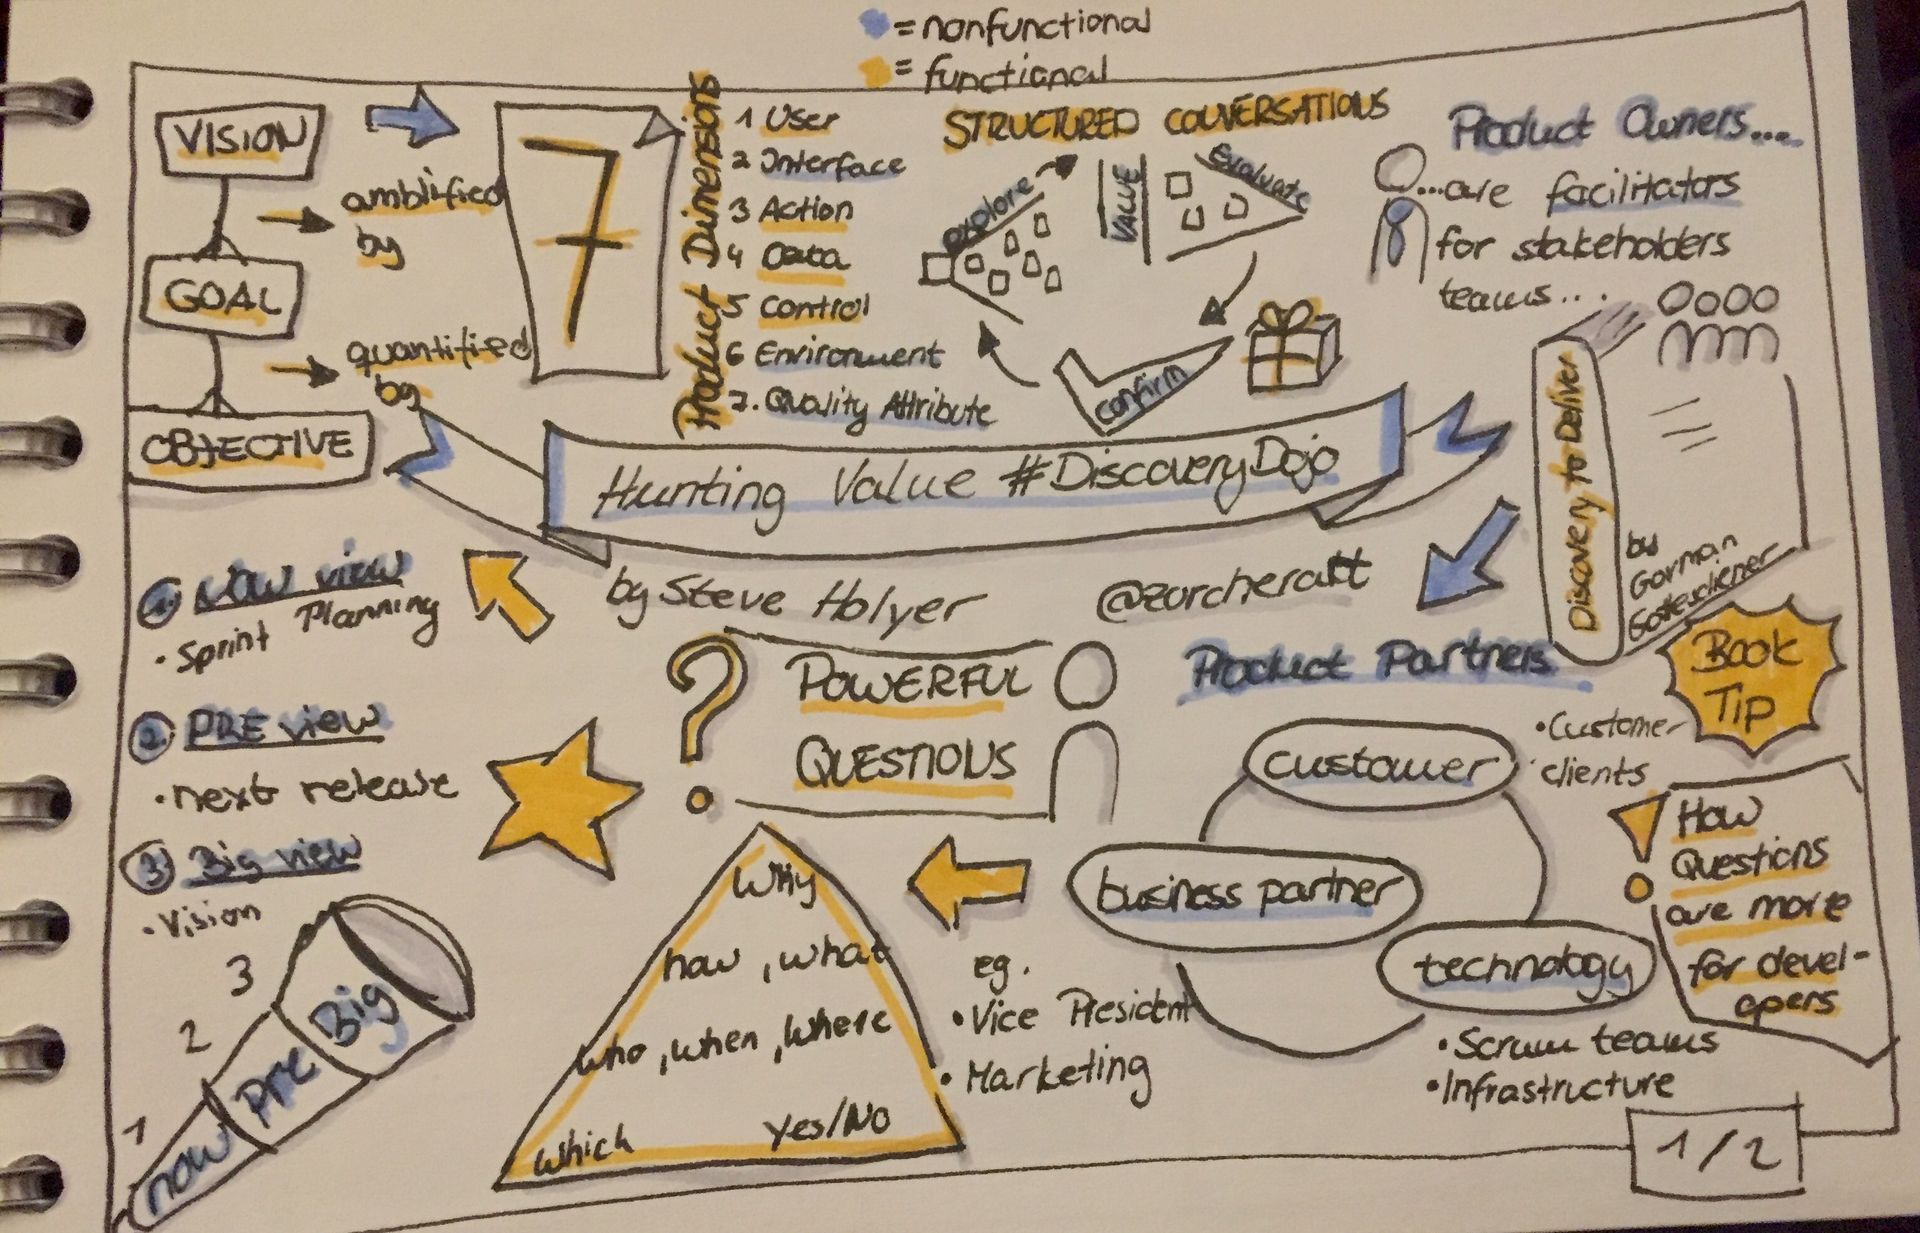 = nonfunctional
= functional
VISION
amblified
by
GOAL
quantified
by
OBJECTIVE
7
Product Dimensions
1 User
2 Interface
3 Action
4 Data
5 Control
6 Environment
7. Quality Attribute
STRUCTURED CONVERSATIONS
explore
VALUE
Evaluate
confirm
Product Owners....
...are facilitators
for stakeholders
teams...
Discovery to Deliver
by
Gorman
Gottesdiener
Book
Tip
Hunting Value #DiscoveryDojo
by Steve Holyer
@zurcherart
1. NOW view
• Sprint Planning
2. PRE view
• next release
3 Big view
• Vision
3
2
1
Big
Pre
now
?
POWERFUL
QUESTIONS
Why
how, what
who, when, where
which
Yes/No
Product Partners
customer
• Customer
• clients
business partner
eg.
• Vice President
• Marketing
technology
• Scrum teams
• Infrastructure
!
How
Questions
are more
for devel-
opers
1/2